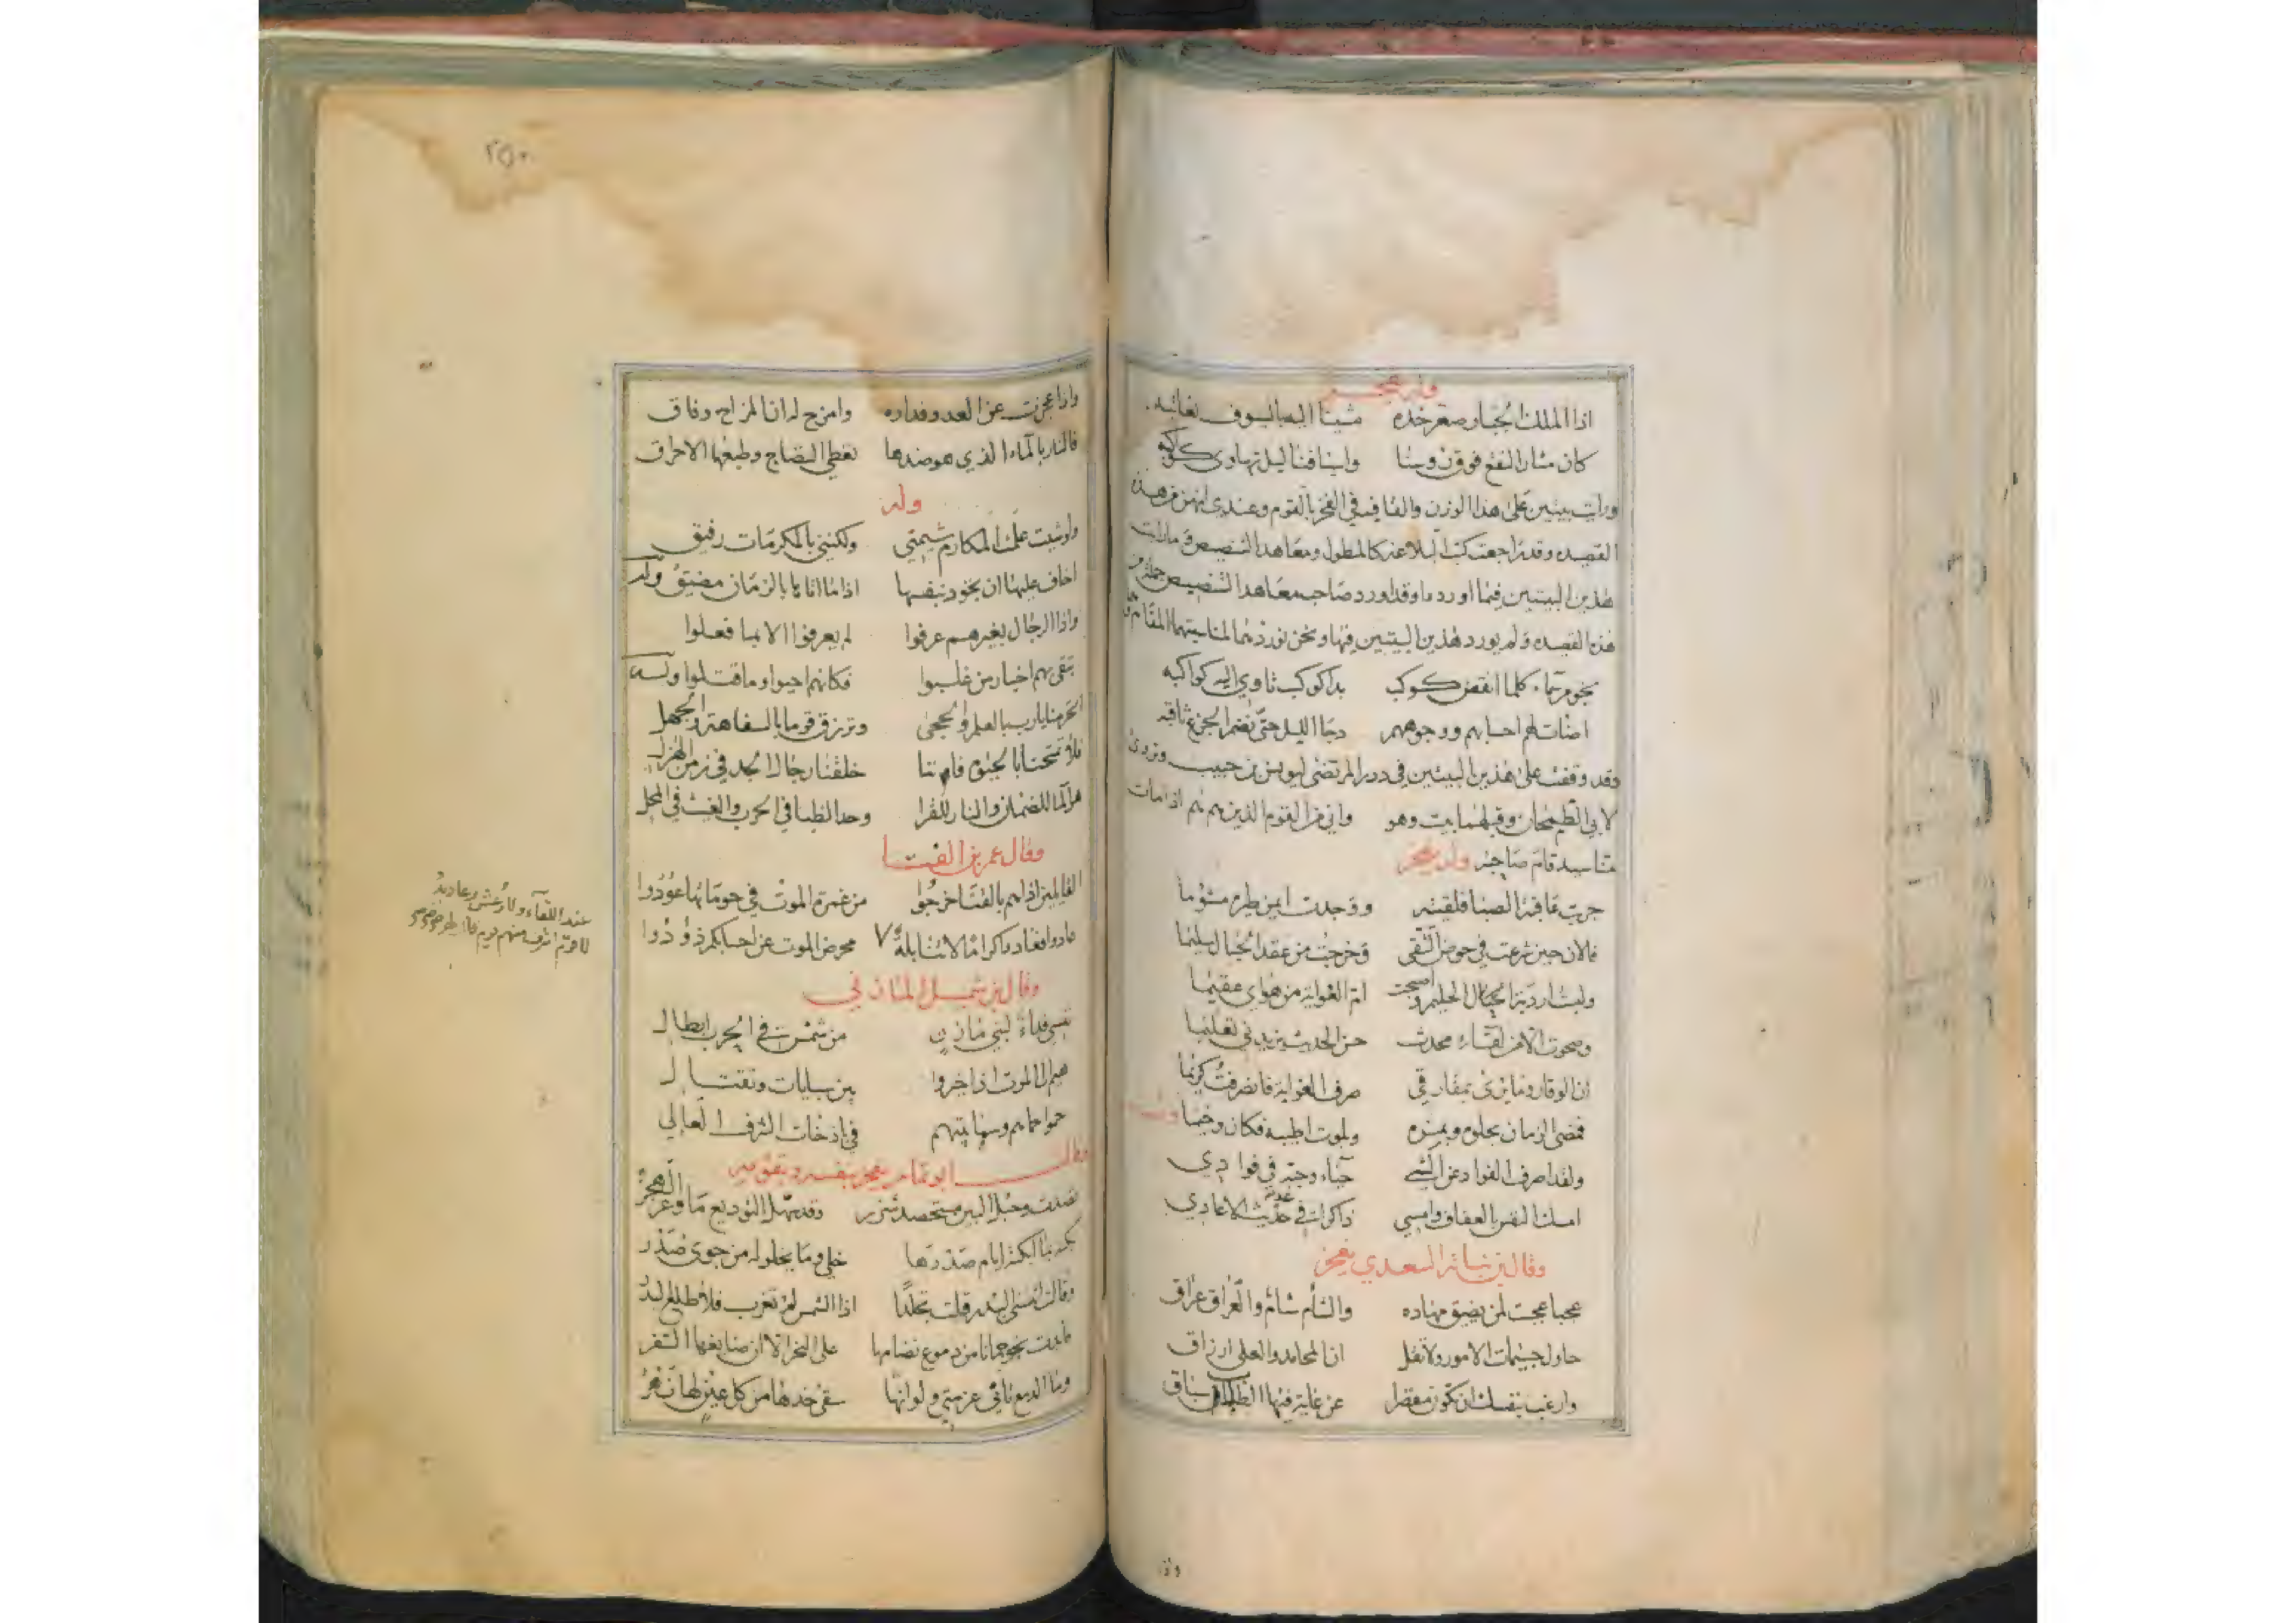 وله يفخر
اذا الملك الجبار صعر خده مشينا اليه بالسيوف نعاتبه
كان مثار النقع فوق رؤسنا واسيافنا ليل تهاوى كواكبه
ورايت بيتين على هذا الوزن والقافيه في الفخر بالقوم وعندي انهن من هذه
القصيده وقد راجعت كتب البلاغه كالمطول ومعاهد التنصيص فما رايت
هذين البيتين فيما اوردها وقد اورد صاحب معاهد التنصيص جمله من
هذه القصيده ولم يورد هذين البيتين فيها ونحن نوردهما لمناسبتهما المقام
نجوم سماء كلما انقض كوكب بدا كوكب تاوي اليه كواكبه
اضائت لهم احسابهم ووجوههم دجا الليل حتى نضم الجزع ثاقبه
وقد وقفت على هذين البيتين في درر المرتضى ليونس بن حبيب وتروى
لابي الطمحان وقبلهما بيت وهو واني من القوم الذين هم هم اذا مات
منا سيد قام صاحبه وله يفخر
فالان حين شرعت في حوض التقى وخرجت من عقد الحبال سليما
ولبست اردية الحليم واصبحت ام الغواية من هواي عقيما
وصحوت الا من لقاء محدث حسن الحديث يزيدني تعليما
ان الوقار وما يرى بمفارقي صرف الغواية فانصرفت كريما
فمضى الزمان بحلوه وبمره وبلوت اطيبه فكان وخيما وله
ولقد اصرف الفواد عن الشي حياء وحبه في فوادي
امسك النفس بالعفاف وامسي ذاكرا في غد حديث الاعادي
وقال بن نباته السعدي يفخر
عجبا عجبت لمن يضيق مهاده والشأم شأم والعراق عراق
حاول جسيمات الامور ولا تقل ان المحامد والعلى ارزاق
وارغب بنفسك ان تكون مقصرا عن غاية فيها الطلاب سباق
واذا
٢٥٠
واذا عجزت عن العدو فداره وامزح له ان المزاح وفاق
فالنار بالماء الذي هو ضدها تعطي النضاج وطبعها الاحراق
وله
ولو شيت علمت المكارم شيمتي ولكنني بالمكرمات رفيق
اخاف عليها ان تجود بنفسها اذا ما اتاها بالزمان مضيق وله
واذا الرجال بغيرهم عرفوا لم يعرفوا الا بما فعلوا
تبقى بهم اخبار من غلبوا فكانهم احيوا وما قتلوا وله
اتحرمنا يا رب بالعلم والحجى وترزق قوما بالسفاهة والجهل
وقال عمر بن الفتا
القايلين اذا هم بالقنا خرجوا من غمرة الموت في حوماتها عودوا
عادوا فعادوا كراما لا تنابلة
عند اللقاء ولا رعش رعاديد
لا قوم اكرم منهم يوم قال لهم
محرض الموت عن احسابكم ذودوا
وقال بن شميل المازني
نفسي فداء لبني مازن من شمس في الحرب ابطال
حموا حماهم وسما بيتهم في باذخات الشرف العالي
وقال ابو تمام يفخر بنفسه وبقومه
تصدت وحبل البين مستحصد شزر وقد سهل التوديع ما وعر الهجر
بكته بما ابكته ايام صدرها خلي وما يخلو له من جوى صدر
وقالت اتنسى البدر قلت تجلدا اذا الشمس لم تغرب فلا طلع البدر
فابدت جمانا من دموع نضامها على النحر الا ان صايغها الشفر
وما الدمع ثاني عزمتي ولو انها سقى خدها من كل عين لها نهر